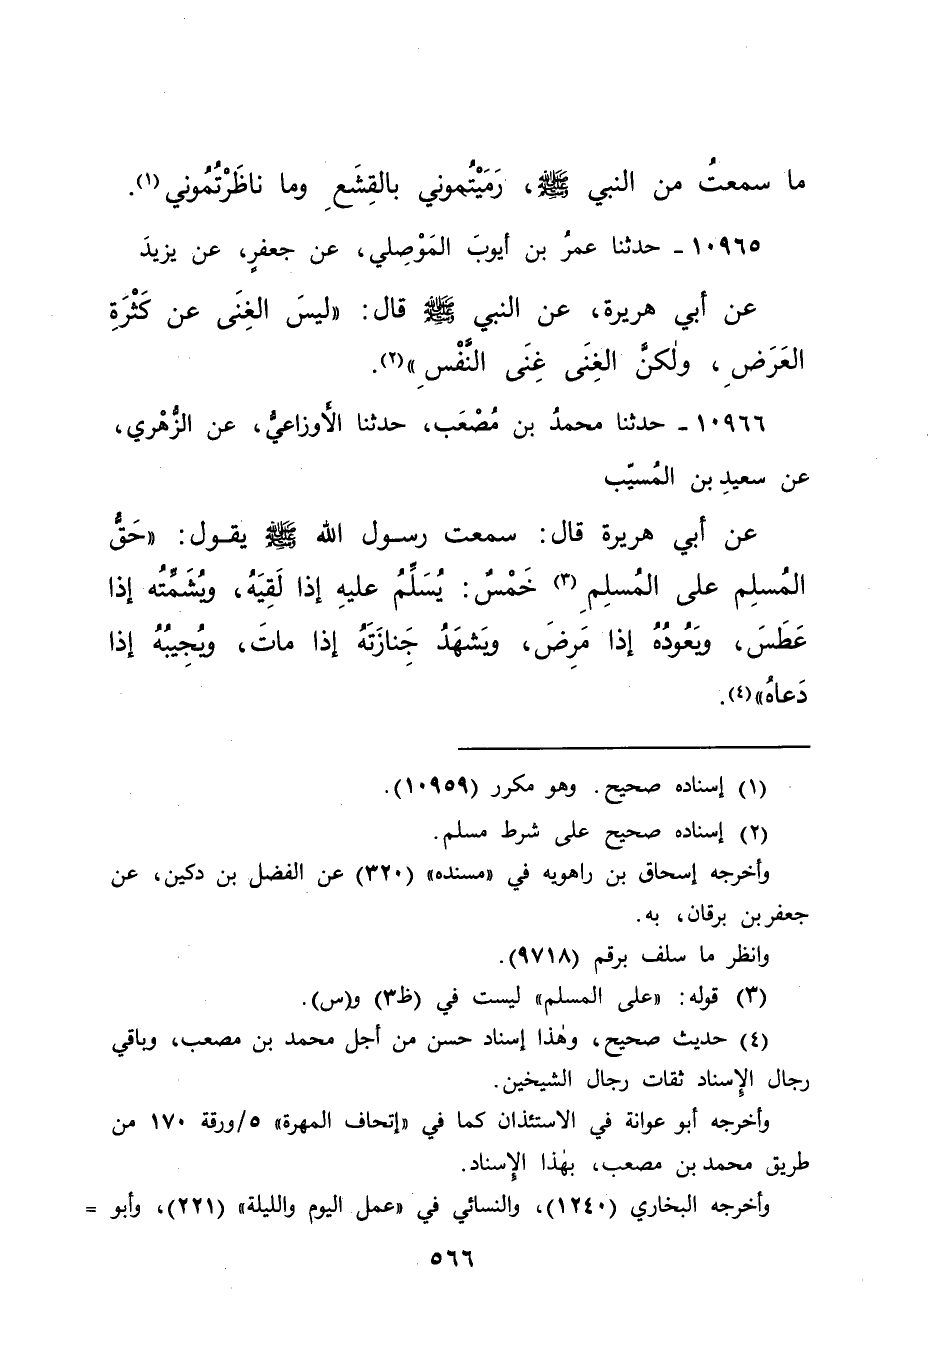 ما سمعتُ من النبي ﷺ، رَمَيْتُموني بالقِشَعِ وما ناظَرْتُمُوني(١).
١٠٩٦٥ ـ حدثنا عمرُ بن أيوبَ المَوْصِلي، عن جعفرٍ، عن يزيدَ
عن أبي هريرة، عن النبي ﷺ قال: «ليسَ الغِنَى عن كَثْرَةِ
العَرَضِ، ولٰكنَّ الغِنَى غِنَى النَّفْسِ»(٢).
١٠٩٦٦ ـ حدثنا محمدُ بن مُصْعَب، حدثنا الأَوزاعيُّ، عن الزُّهْري،
عن سعيدِ بن المُسيّب
عن أبي هريرة قال: سمعت رسول الله ﷺ يقول: «حَقُّ
المُسلِمِ على المُسلِمِ(٣) خَمْسٌ: يُسَلِّمُ عليهِ إذا لَقِيَهُ، ويُشَمِّتُه إذا
عَطَسَ، ويَعُودُهُ إذا مَرِضَ، ويَشهَدُ جَنازَتَهُ إذا ماتَ، ويُجِيبُهُ إذا
دَعاهُ»(٤).
(١) إسناده صحيح. وهو مكرر (١٠٩٥٩).
(٢) إسناده صحيح على شرط مسلم.
وأخرجه إسحاق بن راهويه في «مسنده» (٣٢٠) عن الفضل بن دكين، عن
جعفر بن برقان، به.
وانظر ما سلف برقم (٩٧١٨).
(٣) قوله: «على المسلم» ليست في (ظ٣) و(س).
(٤) حديث صحيح، وهٰذا إسناد حسن من أجل محمد بن مصعب، وباقي
رجال الإسناد ثقات رجال الشيخين.
وأخرجه أبو عوانة في الاستئذان كما في «إتحاف المهرة» ٥/ورقة ١٧٠ من
طريق محمد بن مصعب، بهٰذا الإسناد.
وأخرجه البخاري (١٢٤٠)، والنسائي في «عمل اليوم والليلة» (٢٢١)، وأبو =
٥٦٦